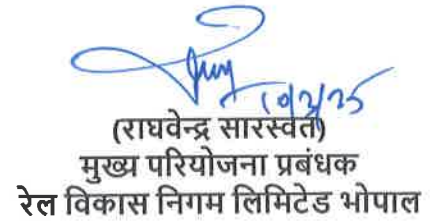 10/3/25
(राघवेन्द्र सारस्वत)
मुख्य परियोजना प्रबंधक
रेल विकास निगम लिमिटेड भोपाल